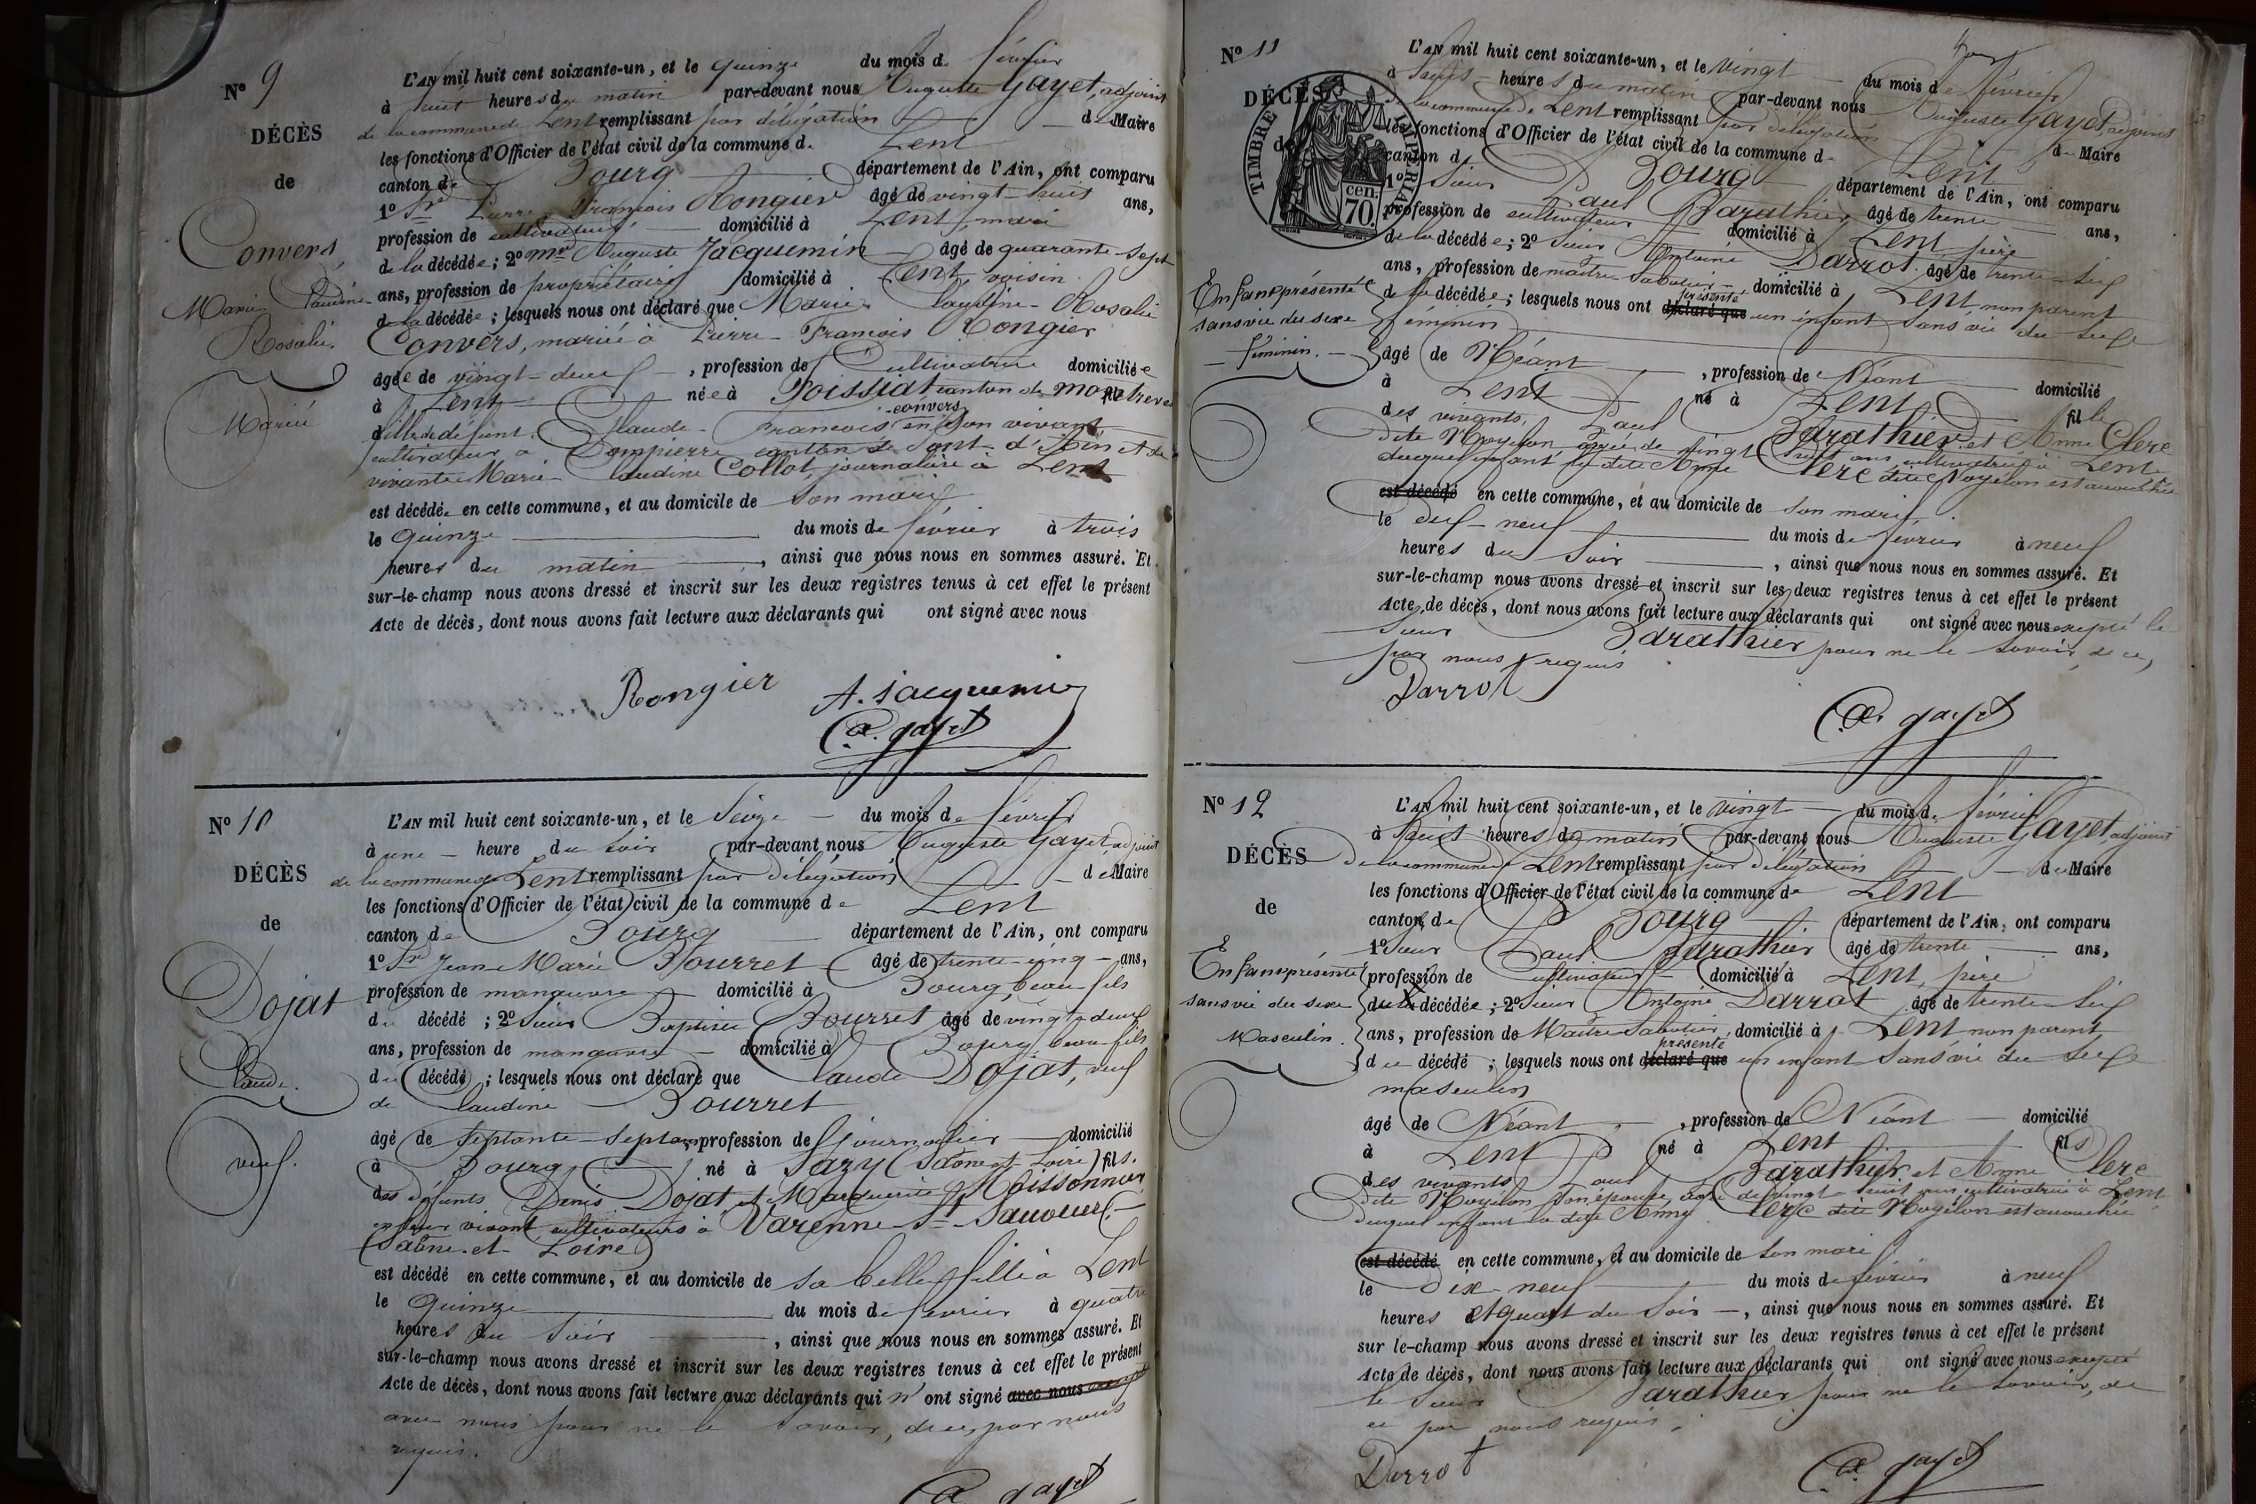 N° 9
DÉCÈS
de
Convers,
Marie Claudine
Rosalie.
Mariée
L'AN mil huit cent soixante-un, et le quinze du mois de février
à huit heures du matin par-devant nous Auguste Gayet, adjoint
de la commune de Lent remplissant par délégation de Maire
les fonctions d'Officier de l'état civil de la commune de Lent
canton de Bourg département de l'Ain, ont comparu
1° Sr Pierre François Rongier âgé de vingt-huit ans,
profession de cultivateur domicilié à Lent, mari
de la décédée; 2° Mr Auguste Jacquemin âgé de quarante-sept
ans, profession de propriétaire domicilié à Lent, voisin
de la décédée; lesquels nous ont déclaré que Marie Claudine Rosalie
Convers, mariée à Pierre François Rongier
âgée de vingt-deux, profession de Cultivatrice domiciliée
à Lent née à Poissiat canton de Montrevel
fille de défunt Claude François convers en son vivant
cultivateur à Dompierre canton de Pont-d'Ain et de
vivante Marie Claudine Collot, journalière à Lent
est décédée en cette commune, et au domicile de son mari
le quinze du mois de février à trois
heures du matin, ainsi que nous nous en sommes assuré. Et
sur-le-champ nous avons dressé et inscrit sur les deux registres tenus à cet effet le présent
Acte de décès, dont nous avons fait lecture aux déclarants qui ont signé avec nous
Rongier A. Jacquemin
A. Gayet
N° 10
DÉCÈS
de
Dojat
Claude.
veuf.
L'AN mil huit cent soixante-un, et le seize du mois de février
à une heure du soir par-devant nous Auguste Gayet adjoint
de la commune de Lent remplissant par délégation de Maire
les fonctions d'Officier de l'état civil de la commune de Lent
canton de Bourg département de l'Ain, ont comparu
1° Sr Jean Marie Bourret âgé de trente-cinq ans,
profession de manœuvre domicilié à Bourg, beau fils
du décédé; 2° Sieur Baptiste Bourret âgé de vingt-deux
ans, profession de manœuvre domicilié à Bourg beau-fils
du décédé; lesquels nous ont déclaré que Claude Dojat, veuf
de Claudine Bourret
âgé de septante-sept ans profession de journalier domicilié
à Bourg né à Sazy (Saône et Loire) fils.
des défunts Denis Dojat et Marguerite Moissonnier
en leur vivant cultivateurs à Varenne St Sauveur
(Saône-et-Loire)
est décédé en cette commune, et au domicile de sa belle fille à Lent
le quinze du mois de février à quatre
heures du soir, ainsi que nous nous en sommes assuré. Et
sur-le-champ nous avons dressé et inscrit sur les deux registres tenus à cet effet le présent
Acte de décès, dont nous avons fait lecture aux déclarants qui n'ont signé avec nous excepté
avec nous pour ne le savoir, de ce par nous
requis.
A. Gayet
N° 11
DÉCÈS
de
TIMBRE IMPÉRIAL
70 cen.
Enfant présenté
sans vie du sexe
féminin.
L'AN mil huit cent soixante-un, et le vingt du mois de février
à heures du matin par-devant nous Auguste Gayet, adjoint
de la commune de Lent remplissant par délégation de Maire
les fonctions d'Officier de l'état civil de la commune de Lent
canton de Bourg département de l'Ain, ont comparu
1° Sieur Paul Barathier âgé de trente ans,
profession de cultivateur domicilié à Lent, père
de la décédée; 2° Sieur Antoine Darrot âgé de trente-six
ans, profession de maître Sabotier domicilié à Lent non parent
de la décédée; lesquels nous ont déclaré que présenté un enfant sans vie du sexe
féminin
âgé de Néant, profession de Néant domicilié
à Lent né à Lent fille
des vivants Paul Barathier et Anne Clerc
dite Moyelon âgée de vingt huit ans cultivatrice à Lent
duquel enfant la dite Anne Clerc dite Moyelon est accouchée
est décédé en cette commune, et au domicile de son mari,
le dix-neuf du mois de février à neuf
heures du soir, ainsi que nous nous en sommes assuré. Et
sur-le-champ nous avons dressé et inscrit sur les deux registres tenus à cet effet le présent
Acte de décès, dont nous avons fait lecture aux déclarants qui ont signé avec nous excepté le
sieur Barathier pour ne le savoir, de ce,
par nous requis
Darrot
A. Gayet
N° 12
DÉCÈS
de
Enfant présenté
sans vie du sexe
Masculin.
L'AN mil huit cent soixante-un, et le vingt du mois de février
à huit heures du matin par-devant nous Auguste Gayet, adjoint
de la commune de Lent remplissant par délégation de Maire
les fonctions d'Officier de l'état civil de la commune de Lent
canton de Bourg département de l'Ain, ont comparu
1° Sieur Paul Barathier âgé de trente ans,
profession de cultivateur domicilié à Lent, père
du décédé; 2° Sieur Antoine Darrot âgé de trente six
ans, profession de Maître Sabotier, domicilié à Lent non parent
du décédé; lesquels nous ont déclaré que présenté un enfant sans vie du sexe
masculin
âgé de Néant, profession de Néant domicilié
à Lent né à Lent fils
des vivants Paul Barathier et Anne Clerc
dite Moyelon son épouse, âgée de vingt huit ans cultivatrice à Lent
duquel enfant la dite Anne Clerc dite Moyelon est accouchée
est décédé en cette commune, et au domicile de son mari
le dix neuf du mois de février à neuf
heures et quart du soir, ainsi que nous nous en sommes assuré. Et
sur le-champ nous avons dressé et inscrit sur les deux registres tenus à cet effet le présent
Acte de décès, dont nous avons fait lecture aux déclarants qui ont signé avec nous excepté
le sieur Barathier pour ne le savoir, de
ce par nous requis.
Darrot
A. Gayet